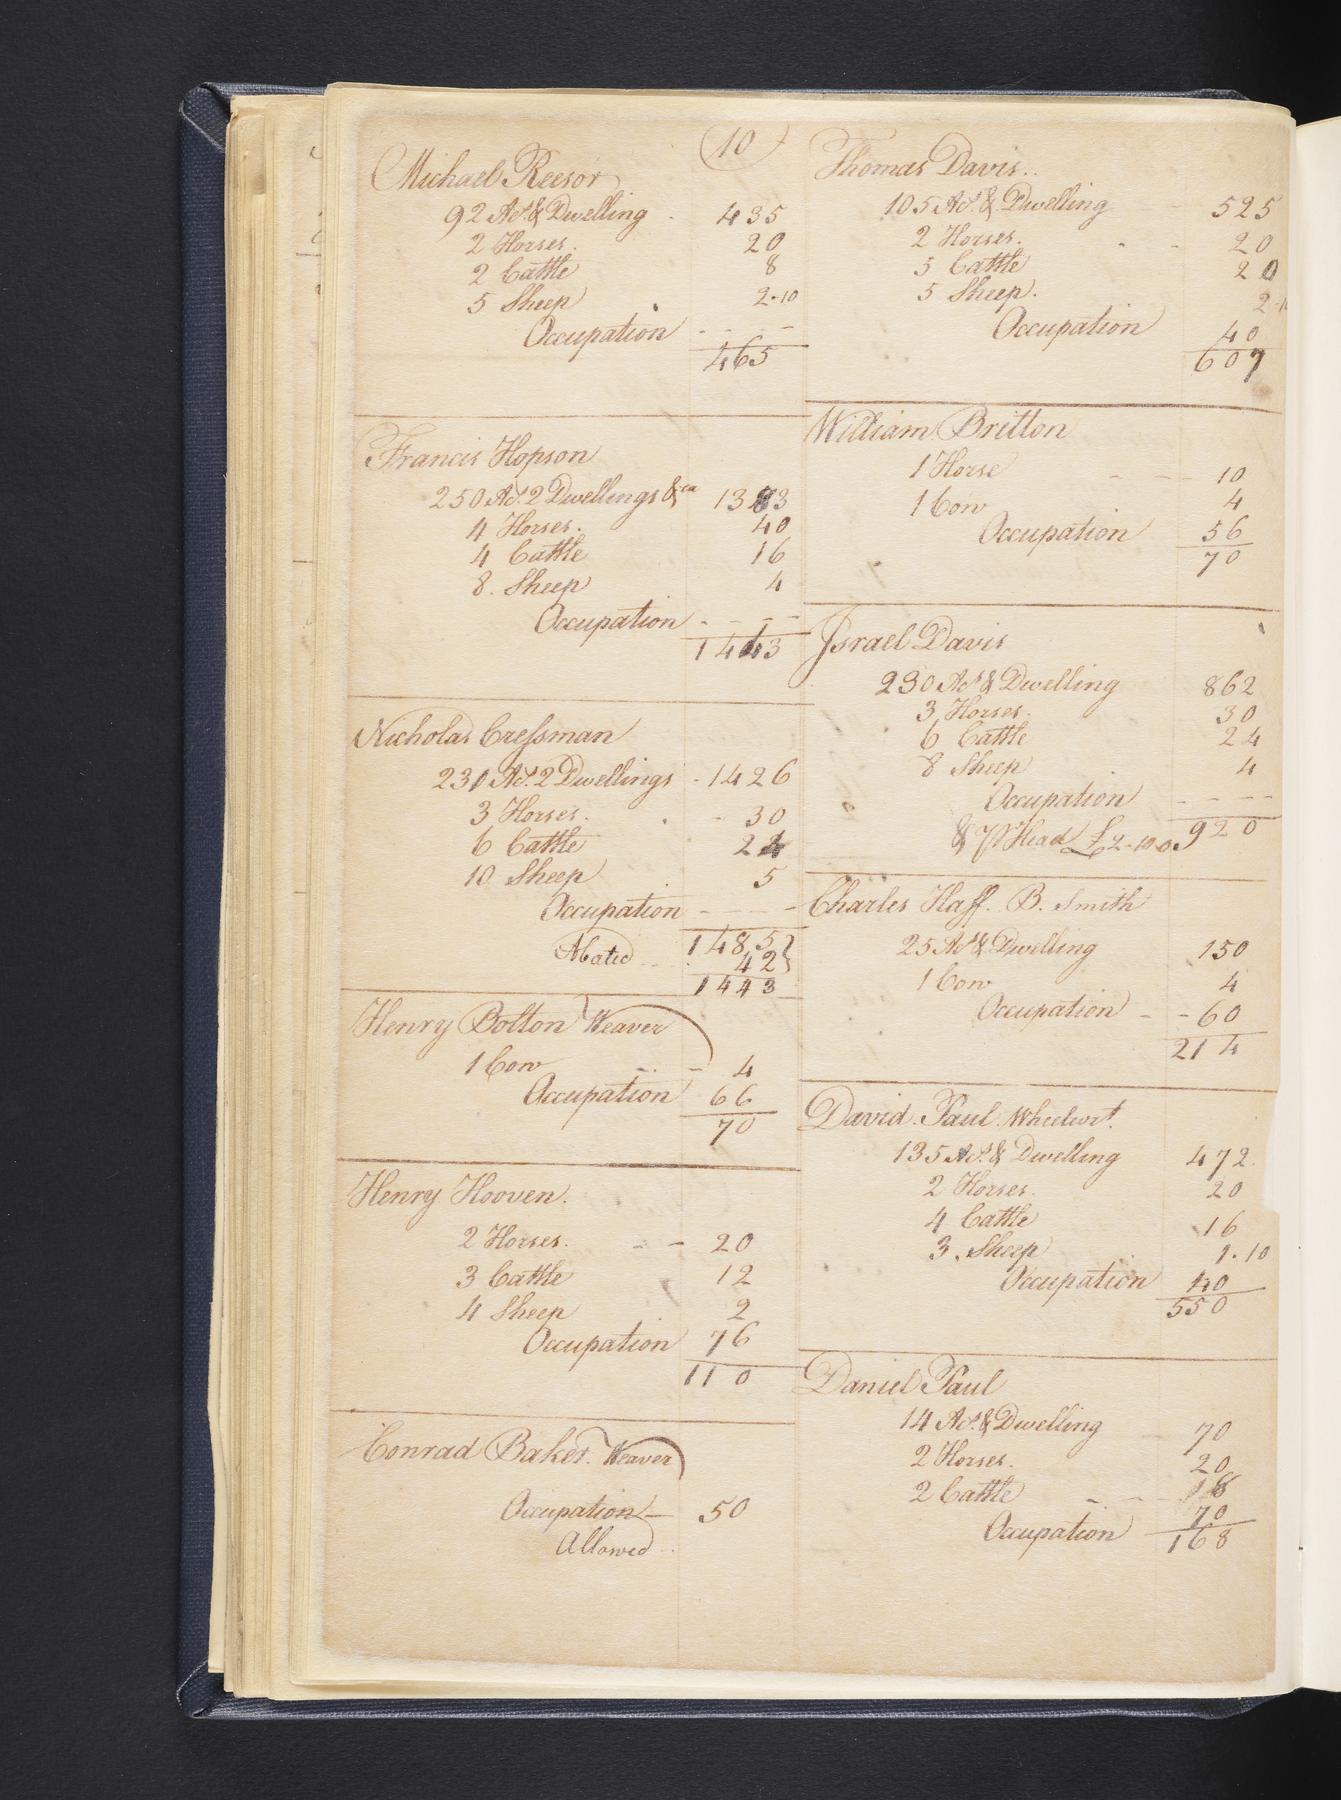 (10)
Michael Reesor
92 Acs. & Dwelling 435
2 Horses. 20
2 Cattle 8
5 Sheep 2-10
Occupation - - - -
465
Francis Hopson
250 Acs 2 Dwellings &ca 1383
4 Horses. 40
4 Cattle 16
8. Sheep 4
Occupation - - - -
1443
Nicholas Cressman
230 Acs. 2 Dwellings - 1426
3 Horses. - 30
6 Cattle 24
10 Sheep 5
Occupation - - - -
1485
Abated - - 42
1443
Henry Bolton Weaver
1 Cow - - - 4
Occupation 66
70
Henry Hooven.
2 Horses. - - 20
3 Cattle 12
4 Sheep 2
Occupation 76
110
Conrad Baker. Weaver
Occupation - 50
Allowed
Thomas Davis..
105 Acs. & Dwelling 525
2 Horses. - - 20
5 Cattle 20
5 Sheep. 2-10
Occupation 40
607
William Britton
1 Horse - - - 10
1 Cow 4
Occupation 56
70
Israel Davis
230 Acs & Dwelling 862
3 Horses. 30
6 Cattle 24
8 Sheep 4
Occupation - - - -
& Head £2-10-0 920
Charles Haff. B. Smith
25 Acs & Dwelling 150
1 Cow 4
Occupation - - 60
214
David Paul Wheelwrt.
135 Acs. & Dwelling 472
2 Horses. 20
4 Cattle 16
3. Sheep 1.10
Occupation 40
550
Daniel Paul
14 Acs. & Dwelling 70
2 Horses. 20
2 Cattle - - - 8
Occupation 70
168